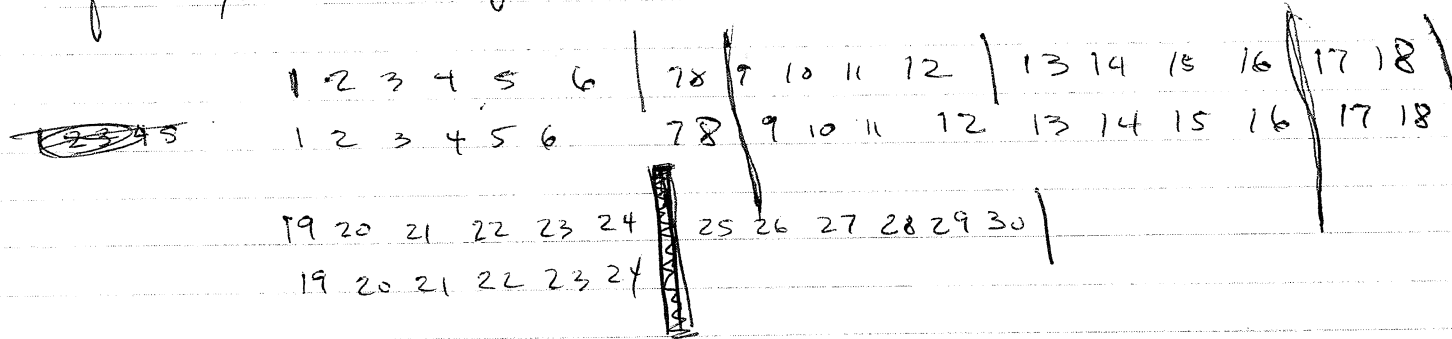 1 2 3 4 5 6 | 7 8 | 9 10 11 12 | 13 14 15 16 | 17 18 |
1 2 3 4 5 6 7 8 | 9 10 11 12 13 14 15 16 | 17 18
19 20 21 22 23 24 | 25 26 27 28 29 30 |
19 20 21 22 23 24